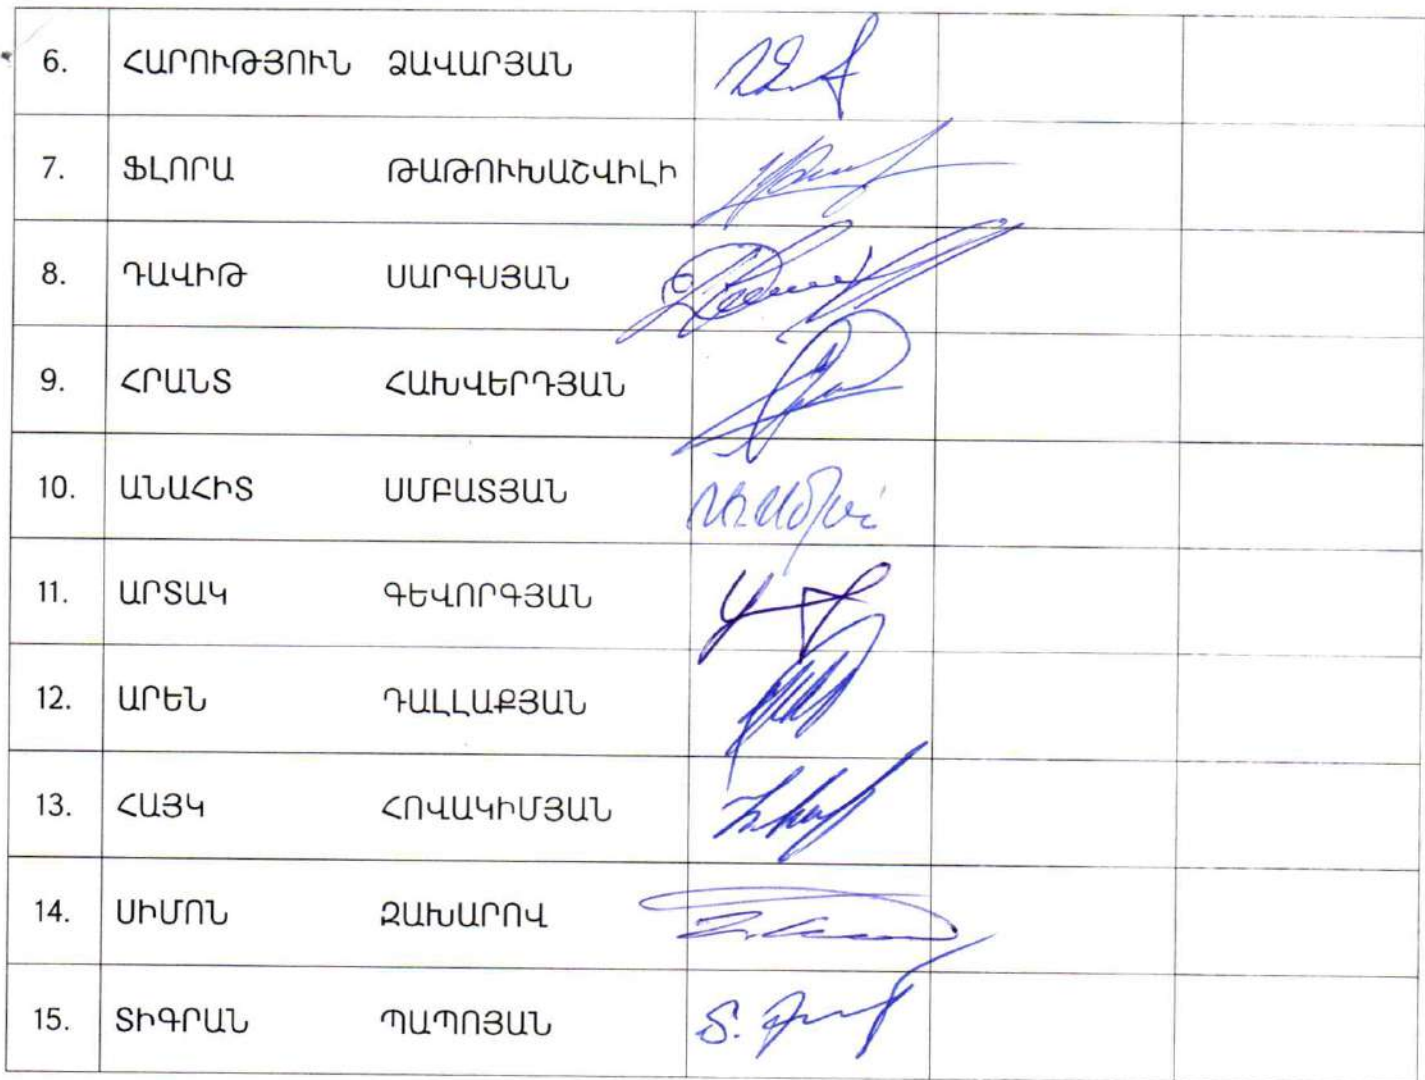 6. ՀԱՐՈՒԹՅՈՒՆ ՁԱՎԱՐՅԱՆ
7. ՖԼՈՐԱ ԹԱԹՈՒԽԱՇՎԻԼԻ
8. ԴԱՎԻԹ ՍԱՐԳՍՅԱՆ
9. ՀՐԱՆՏ ՀԱԽՎԵՐԴՅԱՆ
10. ԱՆԱՀԻՏ ՍՄԲԱՏՅԱՆ
11. ԱՐՏԱԿ ԳԵՎՈՐԳՅԱՆ
12. ԱՐԵՆ ԴԱԼԼԱՔՅԱՆ
13. ՀԱՅԿ ՀՈՎԱԿԻՄՅԱՆ
14. ՍԻՄՈՆ ԶԱԽԱՐՈՎ
15. ՏԻԳՐԱՆ ՊԱՊՈՅԱՆ